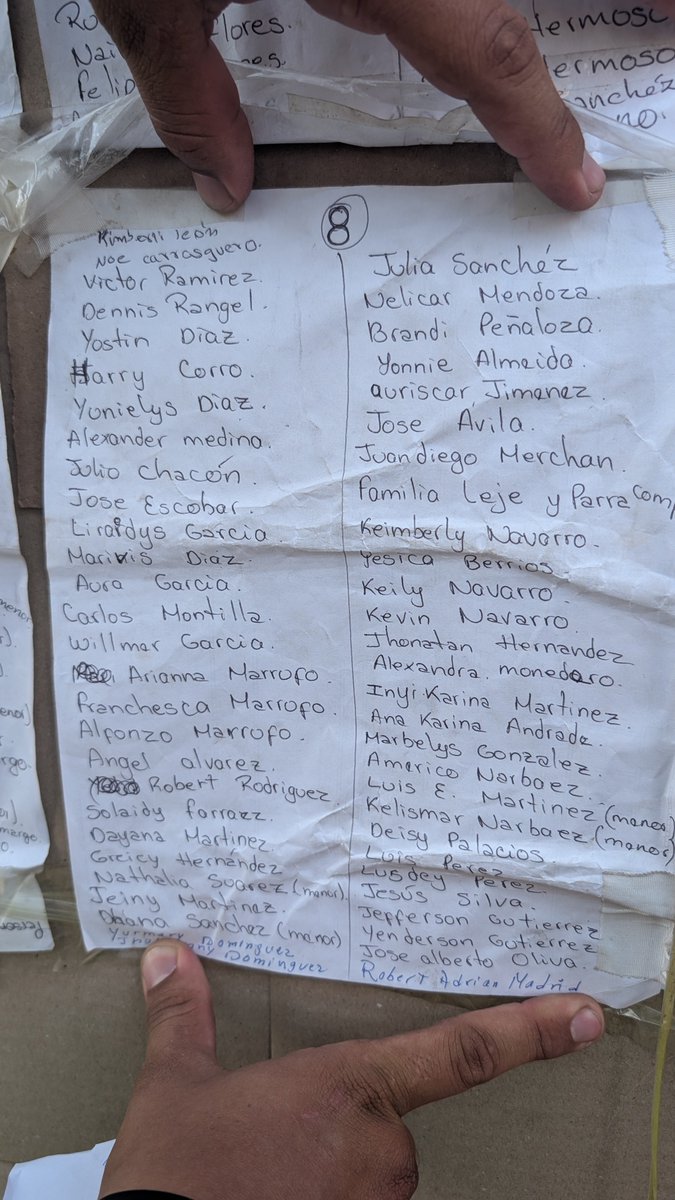 Flores.
Hermoso
Hermoso
Sanchéz
8
Kimberli león
Noe carrasquero.
Victor Ramirez.
Dennis Rangel.
Yostin Diaz.
Harry Corro.
Yunielys Diaz.
Alexander medina.
Julio Chacón.
Jose Escobar.
Garcia.
Marivis Diaz.
Aura Garcia.
Carlos Montilla.
Willmar Garcia.
Arianna Marrufo.
Franchesca Marrufo.
Alfonzo Marrufo.
Angel alvarez.
Robert Rodriguez.
Solaidy farraez.
Dayana Martinez.
Greicy Hernández
Nathalia Suarez (menor).
Jeiny Martinez.
Dhana Sanchez (menor)
Dominguez
Dominguez
Julia Sanchéz
Nelicar Mendoza.
Brandi Peñaloza.
Yonnie Almeida.
auriscar Jimenez.
Jose Avila.
Juandiego Merchan.
Familia Leje y Parra Comp
Keimberly Navarro.
Yesica Berrios.
Keily Navarro.
Kevin Navarro.
Jhonatan Hernandez
Alexandra. monedero.
Inyi Karina Martinez.
Ana Karina Andrade.
Marbelys Gonzalez.
Americo Narbaez.
Luis E. Martinez (menor)
Kelismar Narbaez (menor)
Deisy Palacios.
Luis Perez
Lusdey Perez.
Jesús Silva.
Jefferson Gutierrez
Yenderson Gutierrez
Jose alberto Oliva.
Robert Adrian Madrid